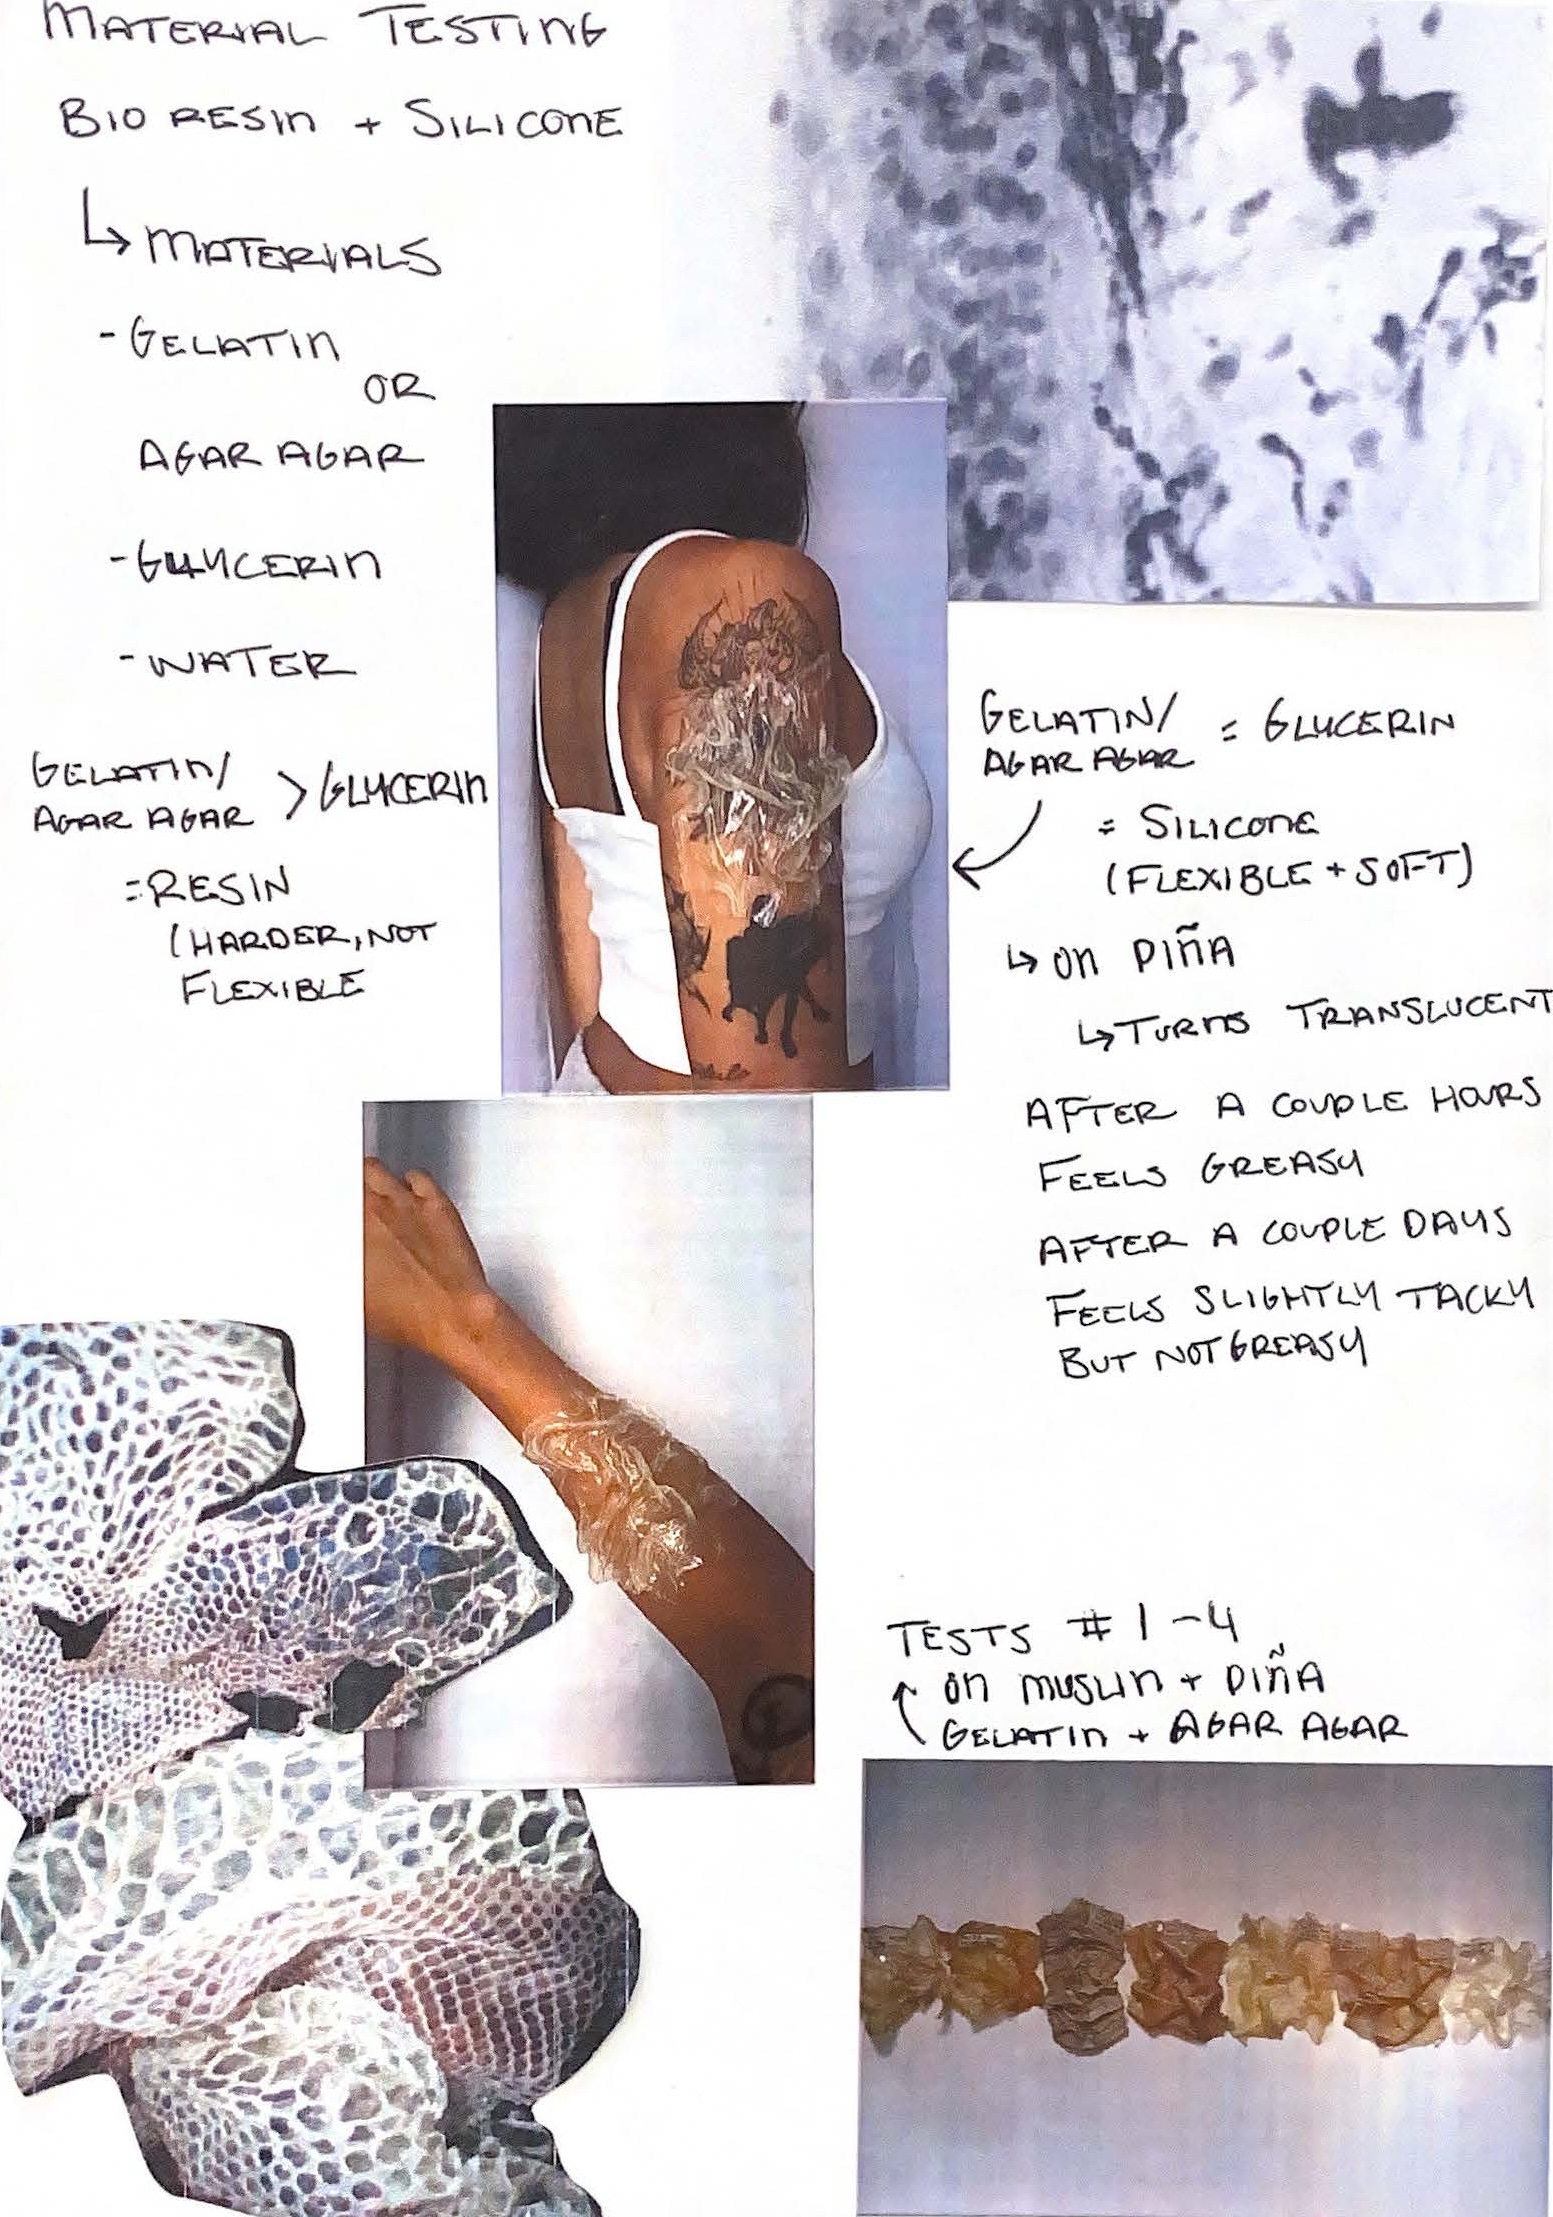 MATERIAL TESTING
BIO RESIN + SILICONE
↳ MATERIALS
- GELATIN
OR
AGAR AGAR
- GLYCERIN
- WATER
GELATIN/
AGAR AGAR > GLYCERIN
= RESIN
(HARDER, NOT
FLEXIBLE
GELATIN/
AGAR AGAR = GLYCERIN
= SILICONE
(FLEXIBLE + SOFT)
↳ ON PIÑA
↳ TURNS TRANSLUCENT
AFTER A COUPLE HOURS
FEELS GREASY
AFTER A COUPLE DAYS
FEELS SLIGHTLY TACKY
BUT NOT GREASY
TESTS #1-4
ON MUSLIN + PIÑA
GELATIN + AGAR AGAR